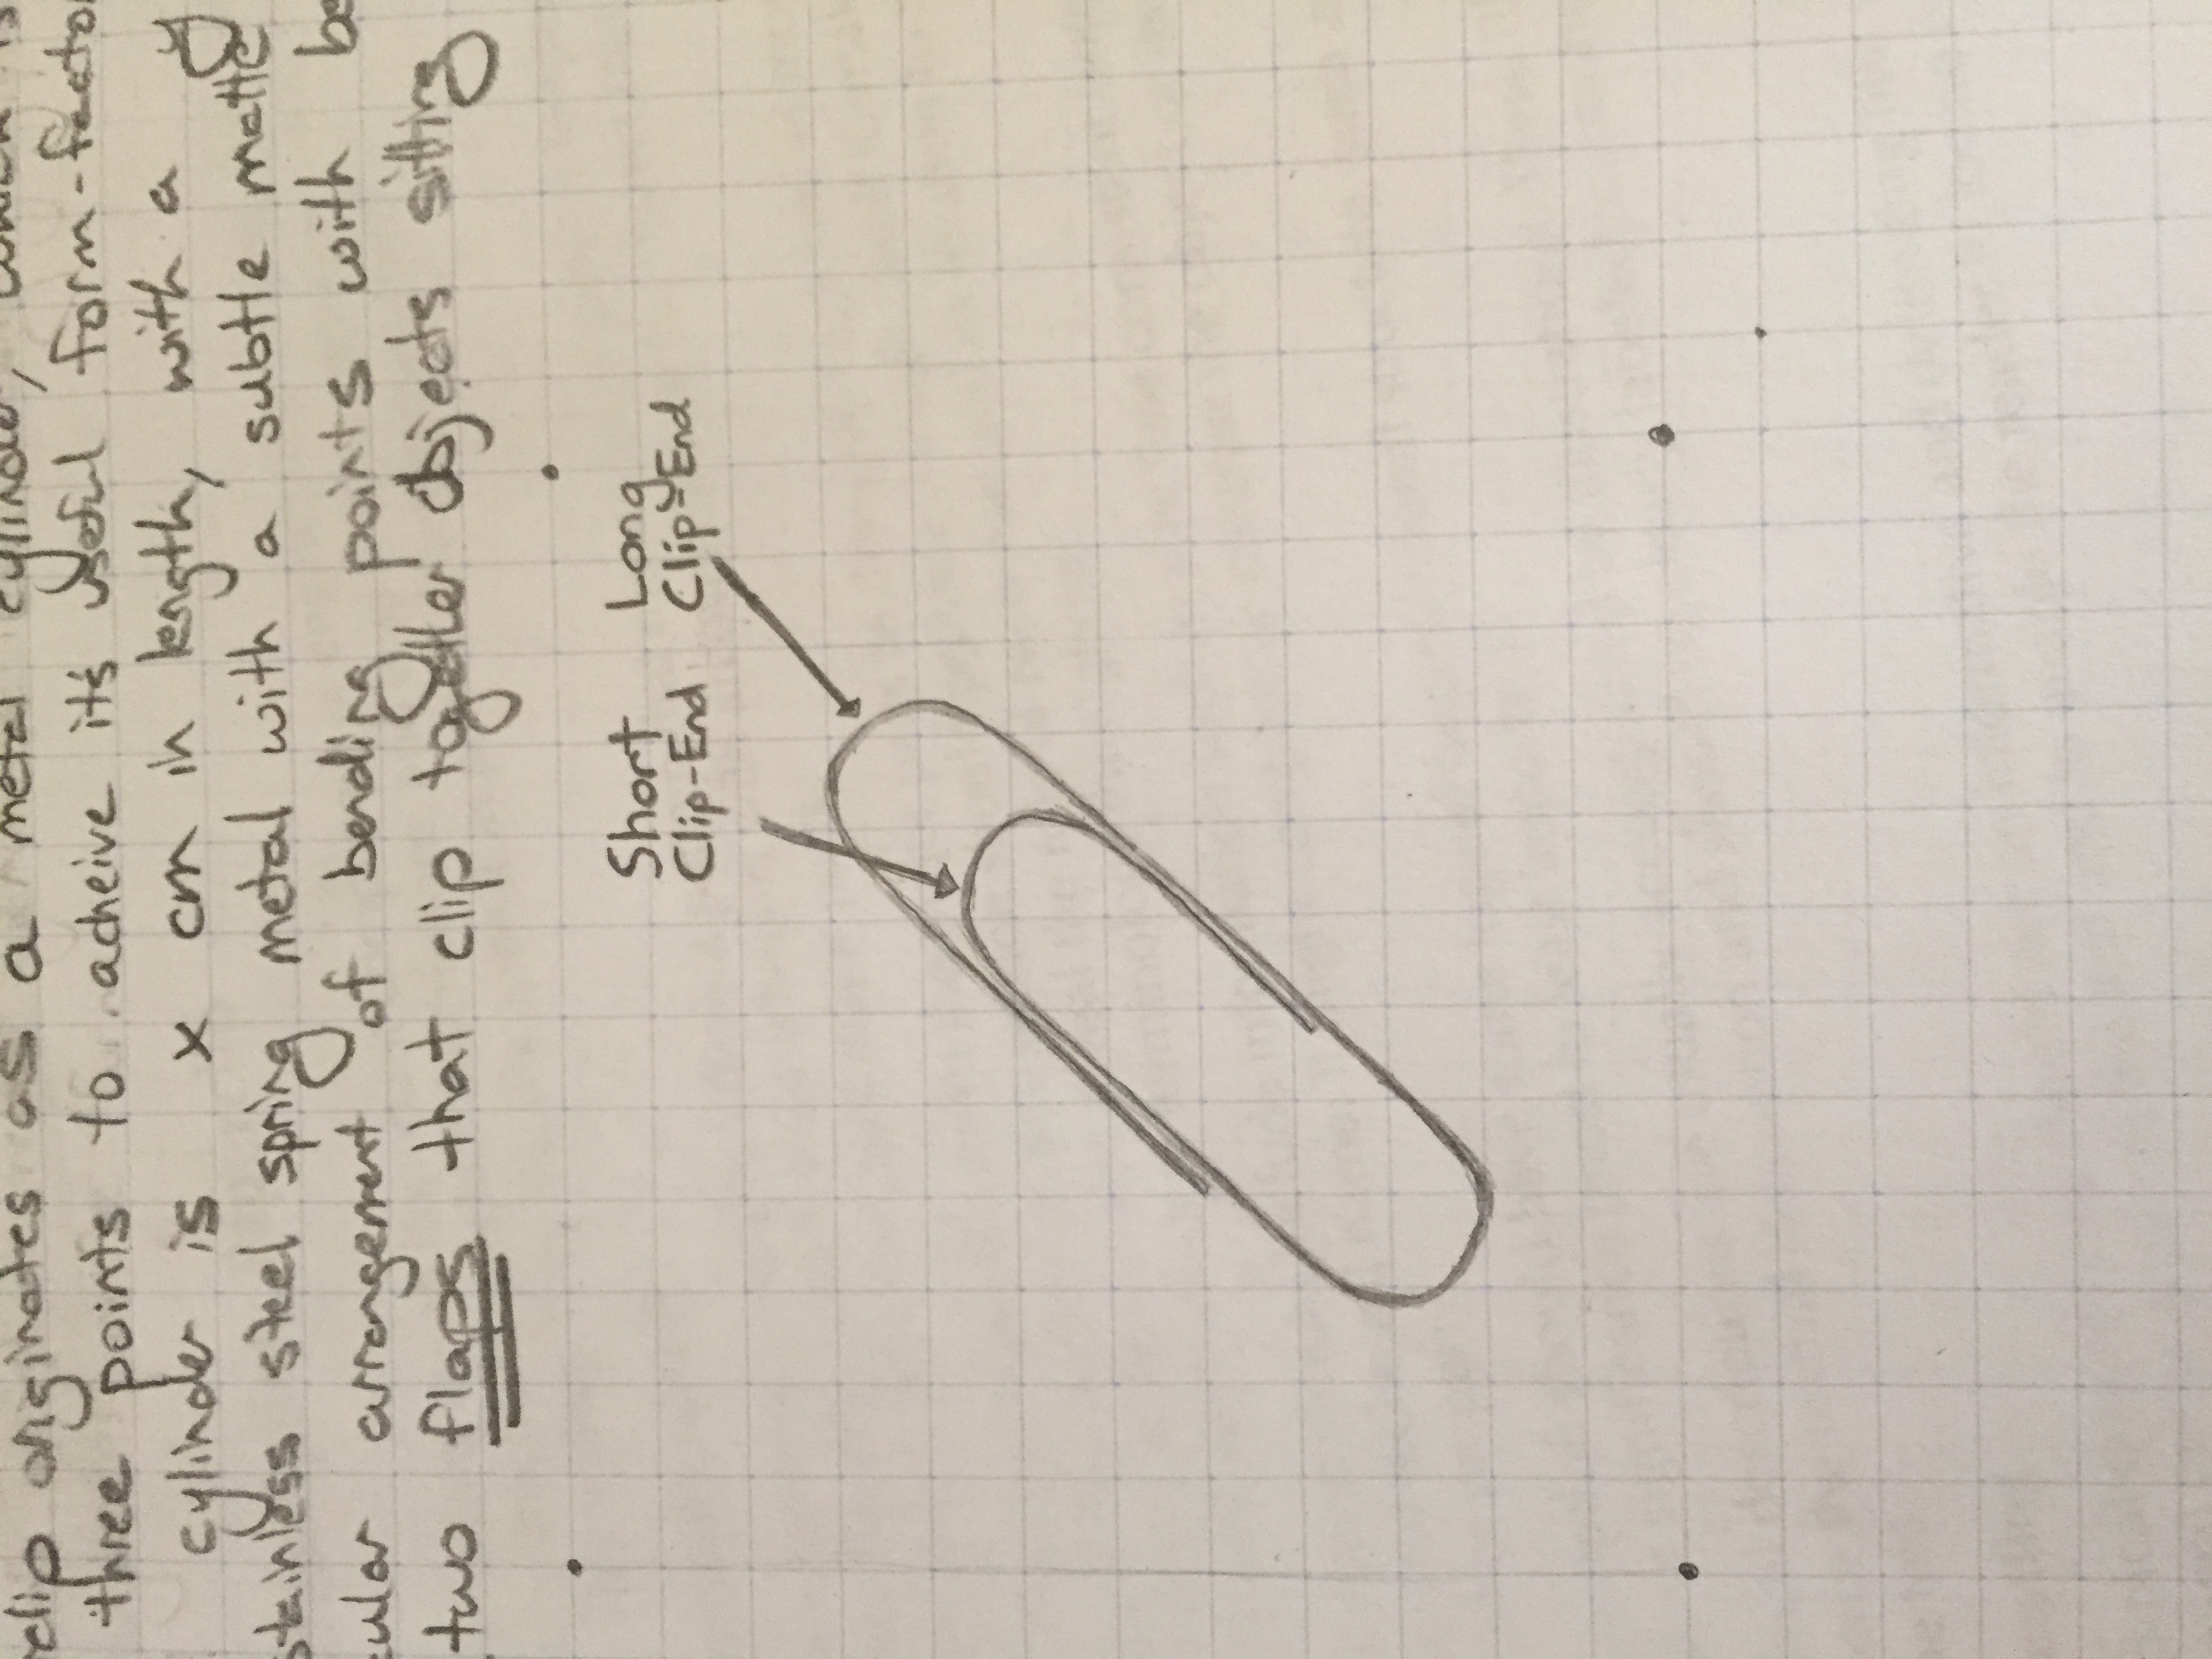 clip originates as a metal cylinder, which is
three points to acheive it's useful form-factor
cylinder is x cm in length, with a y
stainless steel spring metal with a subtle matte
cular arrangement of bending points with be
two flaps that clip together objects sitting
Short Clip-End
Long Clip-End